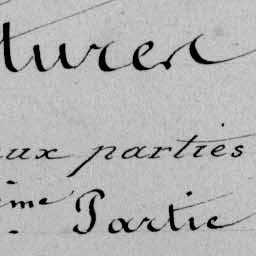 tures
aux parties
ème Partie